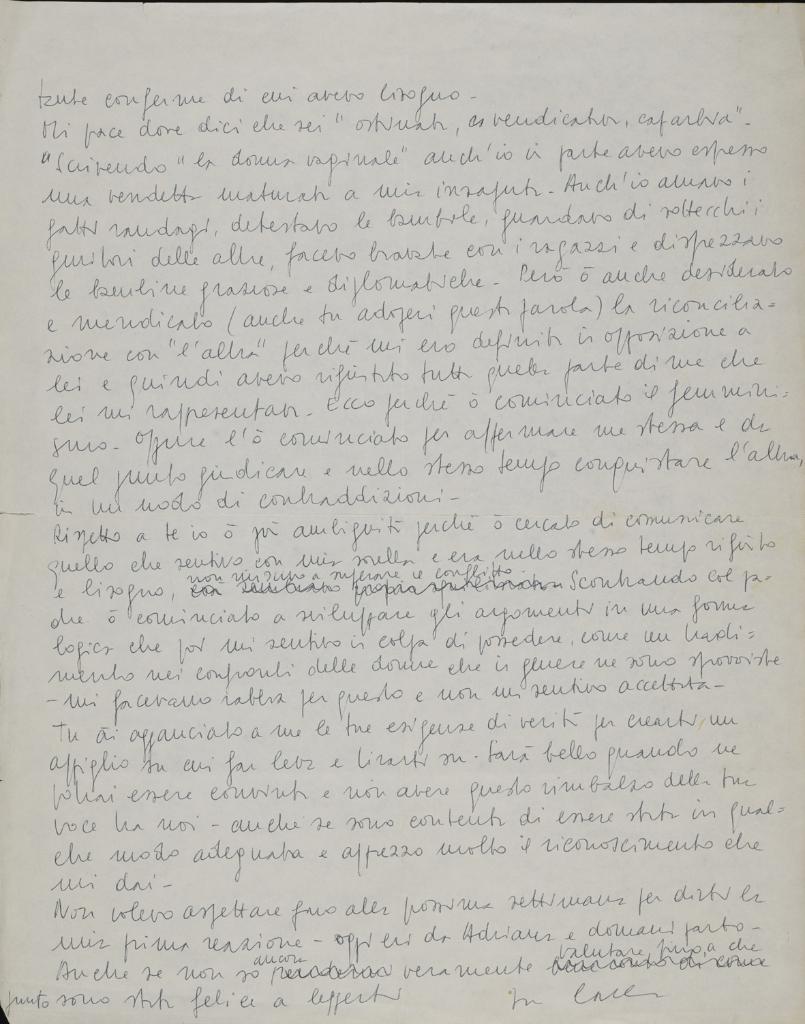 tante conferme di cui avevo bisogno -
Mi piace dove dici che sei "ostinata, e vendicativa, caparbia".
"Scrivendo "la donna vaginale" anch'io in parte avevo espresso
una vendetta maturata a mia insaputa - Anch'io amavo i
gatti randagi, detestavo le bambole, guardavo di sottecchi i
genitori delle altre, facevo bravate con i ragazzi e disprezzavo
le bambine graziose e diplomatiche - Però ò anche desiderato
e mendicato (anche tu adoperi questa parola) la riconcilia=
zione con "l'altra" perché mi ero definita in opposizione a
lei e quindi avevo rifiutato tutta quella parte di me che
lei mi rappresentava - Ecco perché ò cominciato il femmini=
smo - Oppure l'ò cominciato per affermare me stessa e da
quel punto giudicare e nello stesso tempo conquistare l'altra,
in un nodo di contraddizioni -
Rispetto a te io ò più ambiguità perché ò cercato di comunicare
quello che sentivo con mia sorella e era nello stesso tempo rifiuto
e bisogno, non riuscivo a superare il conflitto. Scontrando col pa=
dre ò cominciato a sviluppare gli argomenti in una forma
logica che poi mi sentivo in colpa di possedere, come un tradi=
mento nei confronti delle donne che in genere ne sono sprovviste
- mi facevano rabbia per questo e non mi sentivo accettata -
Tu ài agganciato a me le tue esigenze di verità per crearti un
appiglio su cui far leva e tirarti su. Sarà bello quando ne
potrai essere convinta e non avere questo rimbalzo della tua
voce tra noi - anche se sono contenta di essere stata in qual=
che modo adeguata e apprezzo molto il riconoscimento che
mi dai -
Non volevo aspettare fino alla prossima settimana per dirti la
mia prima reazione - oggi ero da Adriana e domani parto -
Anche se non so ancora veramente valutare fino a che
punto sono stata felice a leggerti